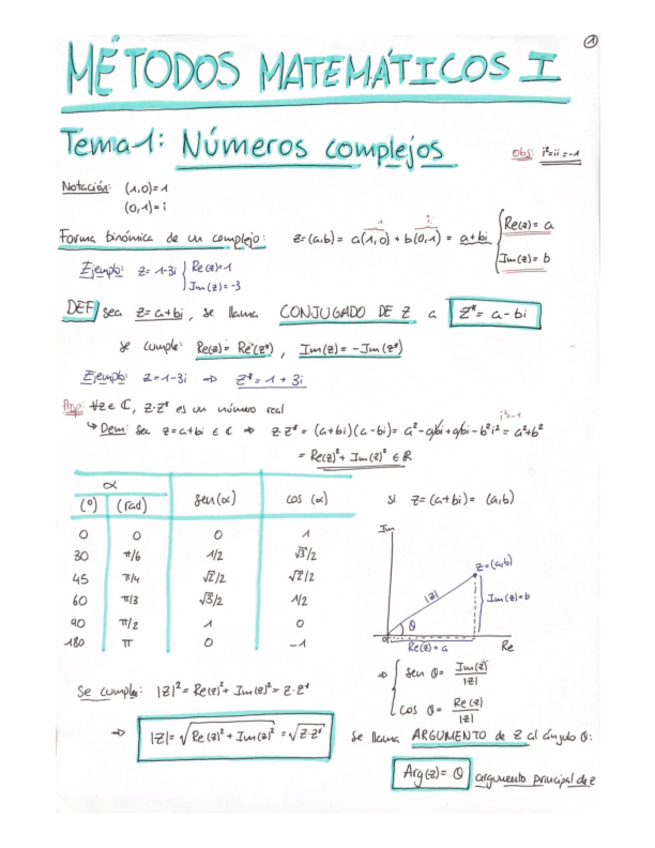 1
MÉTODOS MATEMÁTICOS I
Tema 1: Números complejos
Obs: i²=i·i=-1
Notación: (1,0)=1
(0,1)=i
Forma binómica de un complejo: z=(a,b)= a(1,0) + b(0,1) = a+bi { Re(z)= a
Im(z)= b
1 i
Ejemplo: z=1-3i { Re(z)=1
Im(z)=-3
DEF/ sea z=a+bi, se llama CONJUGADO DE Z a Z*= a-bi
se cumple: Re(z)= Re(z*), Im(z)= -Im(z*)
Ejemplo: z=1-3i ⇒ z*=1+3i
Prop: ∀z∈ℂ, z·z* es un número real
i²=-1
↳ Dem: sea z=a+bi ∈ ℂ ⇒ z·z* = (a+bi)(a-bi)= a²-abi+abi-b²i²= a²+b²
= Re(z)²+Im(z)² ∈ ℝ
α
(º) (rad) sen(α) cos(α)
0 0 0 1
30 π/6 1/2 √3/2
45 π/4 √2/2 √2/2
60 π/3 √3/2 1/2
90 π/2 1 0
180 π 0 -1
si z=(a+bi)= (a,b)
Im
z=(a,b)
|z|
Im(z)=b
θ
0
Re(z)=a
Re
⇒ { sen θ= Im(z)/|z|
cos θ= Re(z)/|z|
Se cumple: |z|²=Re(z)²+Im(z)²=z·z*
⇒ |z|=√Re(z)²+Im(z)² =√z·z*
se llama ARGUMENTO de z al ángulo θ:
Arg(z)= θ argumento principal de z